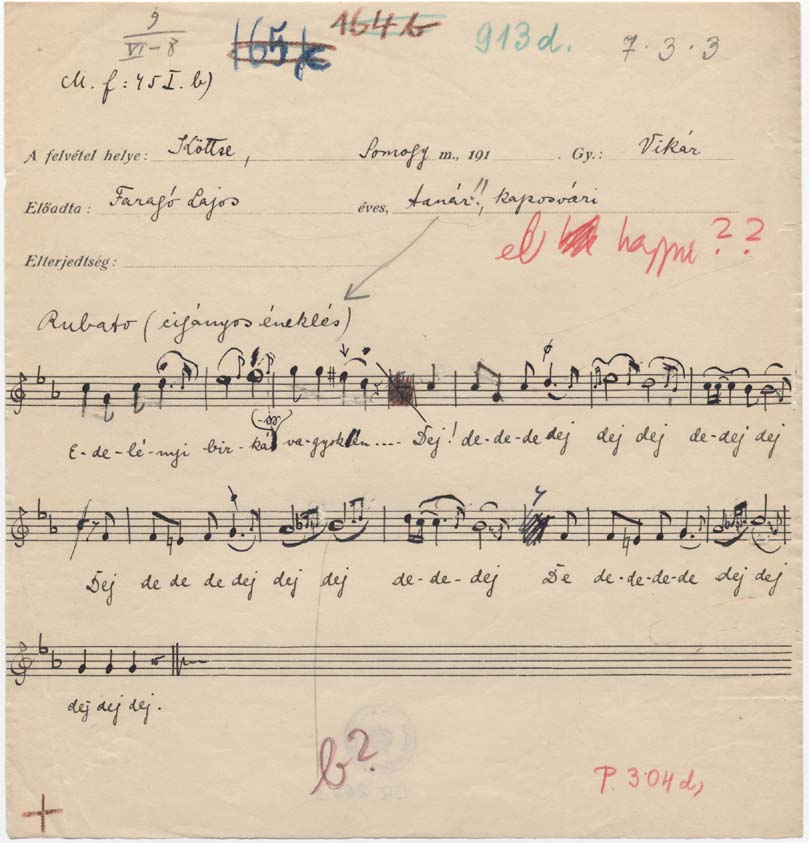 9
VI-8
165/c
164 b
913 d.
7.3.3
M. f: 451. b)
A felvétel helye: Köttse, Somogy m., 191 . Gy.: Vikár
Előadta: Faragó Lajos éves, tanár!!, kaposvári
Elterjedtség:
Rubato (cigányos éneklés)
E-de-lé-nyi bir-kás va-gyok én .... Dej! de-de-de dej dej dej de-dej dej
Dej de de de dej dej dej de-de-dej De de-de-de-de dej dej
dej dej dej.
b?
P. 304 d,
+